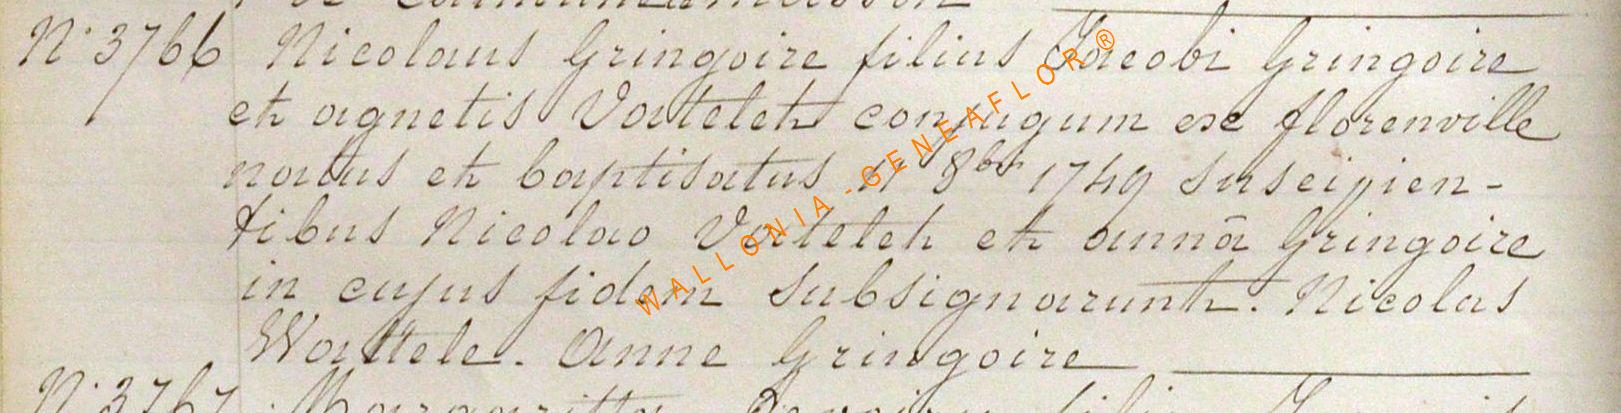 N° 3766 Nicolaus Gringoire filius Jacobi Gringoire
et agnetis Vatelet conjugum ex florenville
natus et baptisatus 11 8bris 1749 suscipien-
tibus Nicolao Vatelet et annā Gringoire
in cujus fidem subsignarunt. Nicolas
Wattele. Anne Gringoire
N° 3767
WALLONIA-GENEAFLOR®